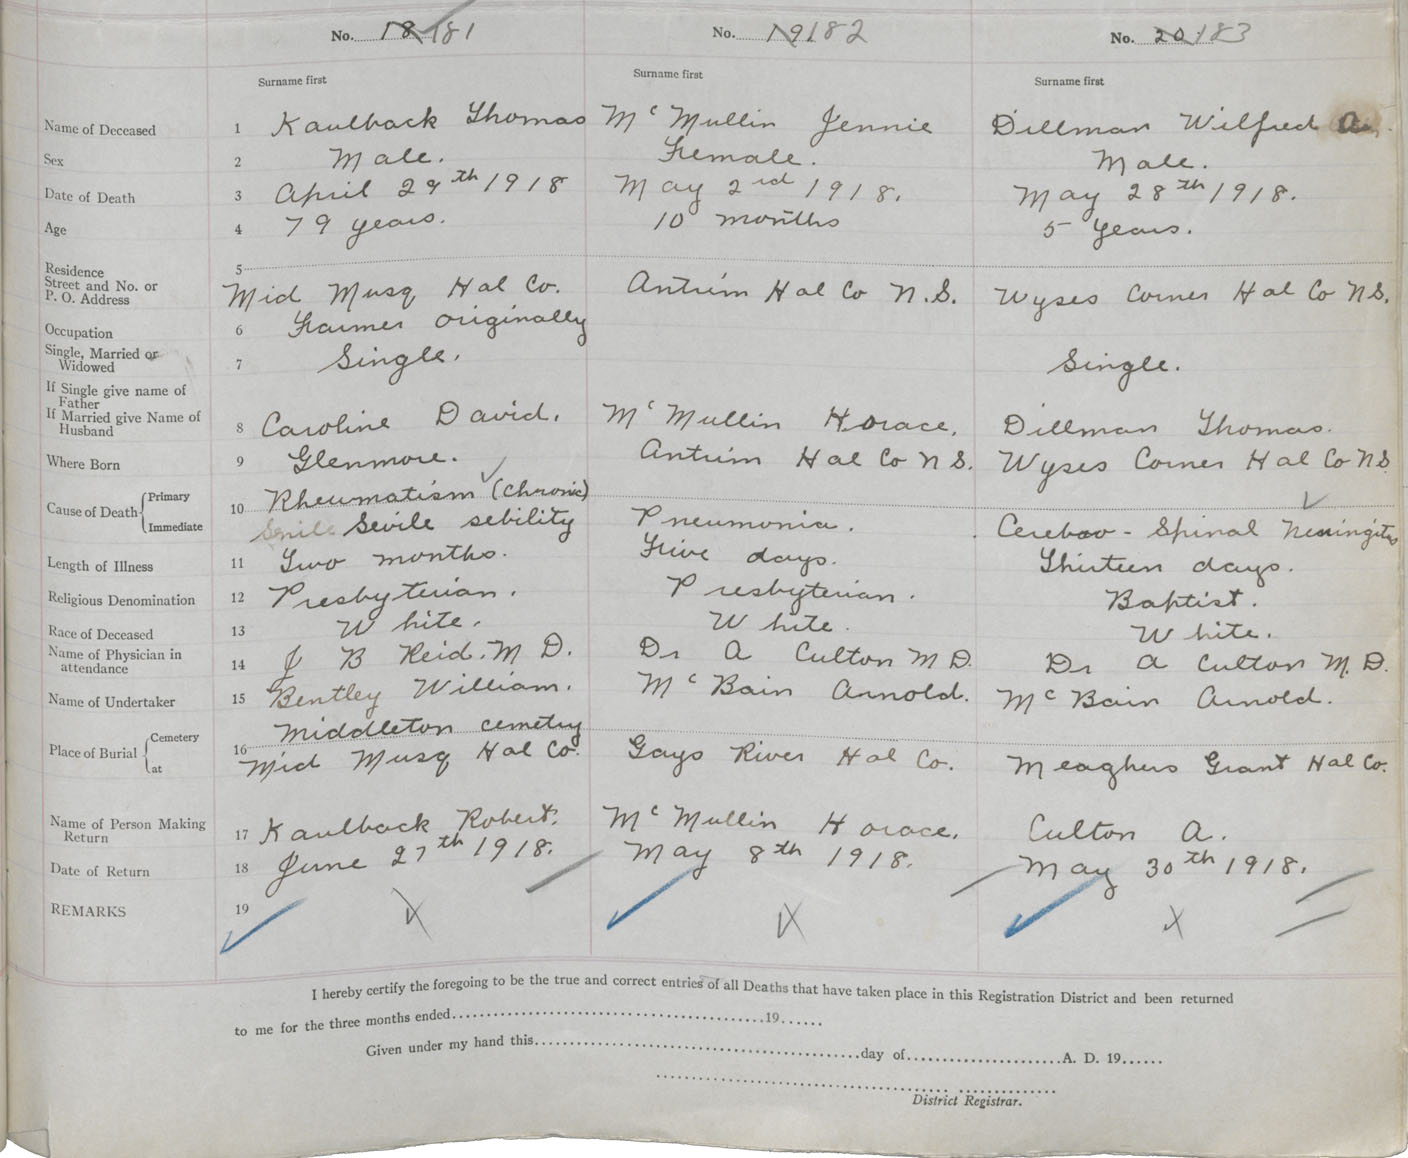 No. 18 181
No. 19 182
No. 20 183
Surname first
Surname first
Surname first
Name of Deceased 1 Kaulback Thomas Mc Mullin Jennie Dillman Wilfred
Sex 2 Male. Female. Male.
Date of Death 3 April 29th 1918 May 2rd 1918. May 28th 1918.
Age 4 79 years. 10 months 5 years.
Residence 5
Street and No. or
P. O. Address Mid Musq Hal Co. Antrim Hal Co N.S. Wyses Corner Hal Co N.S.
Occupation 6 Farmer originally
Single, Married or
Widowed 7 Single. Single.
If Single give name of
Father
If Married give Name of
Husband 8 Caroline David. Mc Mullin Horace. Dillman Thomas.
Where Born 9 Glenmore. Antrim Hal Co N S. Wyses Corner Hal Co N S.
Cause of Death Primary 10 Rheumatism (Chronic)
Immediate Senile Sevile sebility Pneumonia. Cerebro - Spinal Meningitus
Length of Illness 11 Two months. Five days. Thirteen days.
Religious Denomination 12 Presbyterian. Presbyterian. Baptist.
Race of Deceased 13 White. White. White.
Name of Physician in
attendance 14 J B Reid. M D. Dr A Culton M D. Dr A Culton M. D.
Name of Undertaker 15 Bentley William. Mc Bain Arnold. Mc Bain Arnold.
Place of Burial Cemetery 16 Middleton cemetry
at Mid Musq Hal Co. Gays River Hal Co. Meaghers Grant Hal Co.
Name of Person Making
Return 17 Kaulback Robert. Mc Mullin Horace. Culton A.
Date of Return 18 June 27th 1918. May 8th 1918. May 30th 1918.
REMARKS 19
I hereby certify the foregoing to be the true and correct entries of all Deaths that have taken place in this Registration District and been returned
to me for the three months ended 19
Given under my hand this day of A. D. 19
District Registrar.